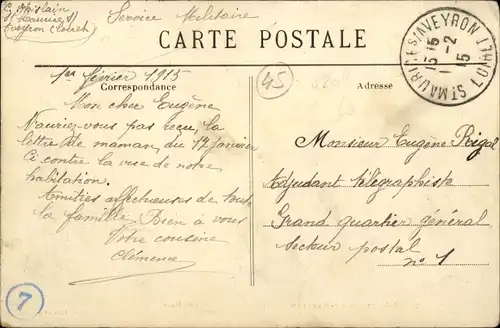 G. Ghislain
St Maurice s/
Aveyron (Loiret)
Service Militaire
CARTE POSTALE
ST MAURICE S/AVEYRON (LOIRET)
15 15
1 -2
15
45
1er février 1915
Correspondance
Adresse
Mon cher Eugène
N'auriez-vous pas reçu, la
lettre de maman, du 12 Janvier
Ci contre la vue de notre
habitation.
Amitiés affectueuses de toute
la famille Bien à vous
Votre cousine
Clémence
Monsieur Eugène Rigal
Adjudant télégraphiste
Grand quartier général
Secteur postal
n° 1
7